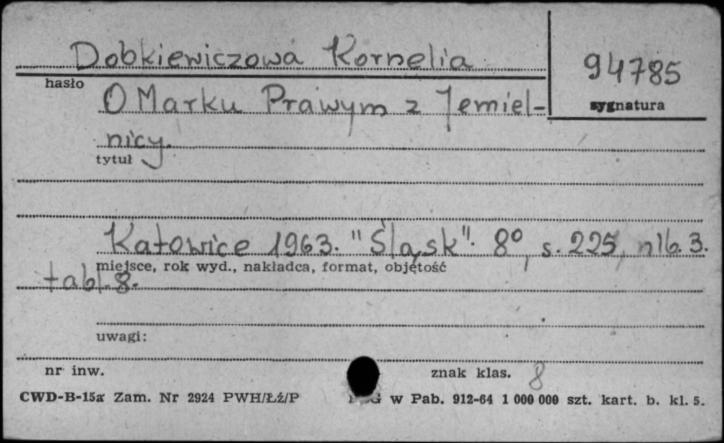 Dobkiewiczowa Kornelia
94785
hasło
sygnatura
O Marku Prawym z Jemiel-
nicy.
tytuł
Katowice 1963. "Śląsk". 8°, s. 225, nlb. 3.
miejsce, rok wyd., nakładca, format, objętość
tabl. 8.
uwagi:
nr inw.
znak klas. 8
CWD-B-15a Zam. Nr 2924 PWH/Łź/P
w Pab. 912-64 1 000 000 szt. kart. b. kl. 5.